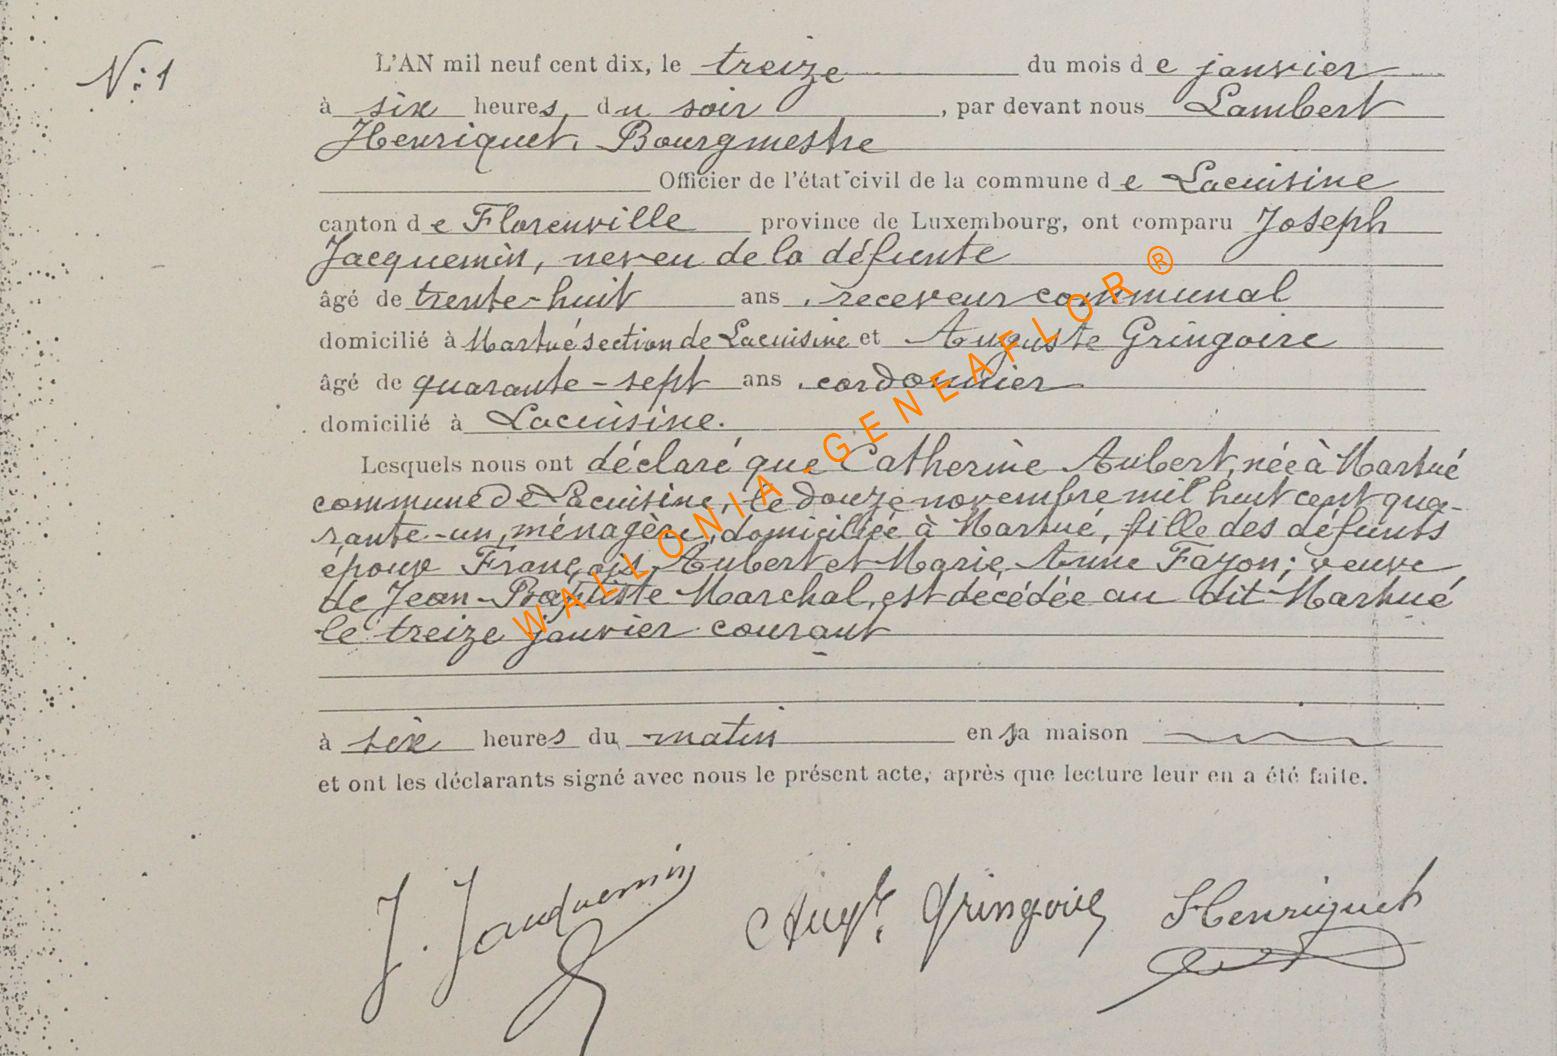 N° 1
L'AN mil neuf cent dix, le treize du mois de janvier
à six heures du soir, par devant nous Lambert
Henriquet, Bourgmestre
Officier de l'état civil de la commune de Lacuisine
canton de Florenville province de Luxembourg, ont comparu Joseph
Jacquemin, neveu de la défunte
âgé de trente-huit ans, receveur communal
domicilié à Martué section de Lacuisine et Auguste Gringoire
âgé de quarante-sept ans, cordonnier
domicilié à Lacuisine.
Lesquels nous ont déclaré que Catherine Aubert, née à Martué
commune de Lacuisine, le douze novembre mil huit cent qua-
rante-un, ménagère, domiciliée à Martué, fille des défunts
époux François Aubert et Marie Anne Fayon; veuve
de Jean-Baptiste Marchal, est décédée au dit Martué
le treize janvier courant
à six heures du matin en sa maison
et ont les déclarants signé avec nous le présent acte, après que lecture leur en a été faite.
J. Jacquemin Aug.te Gringoire Henriquet
WALLONIA-GENEAFLOR ®